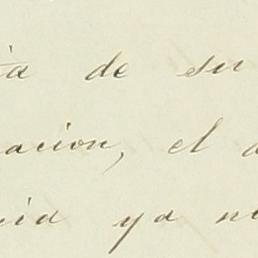 ia de su
acion, el a
nia ya no